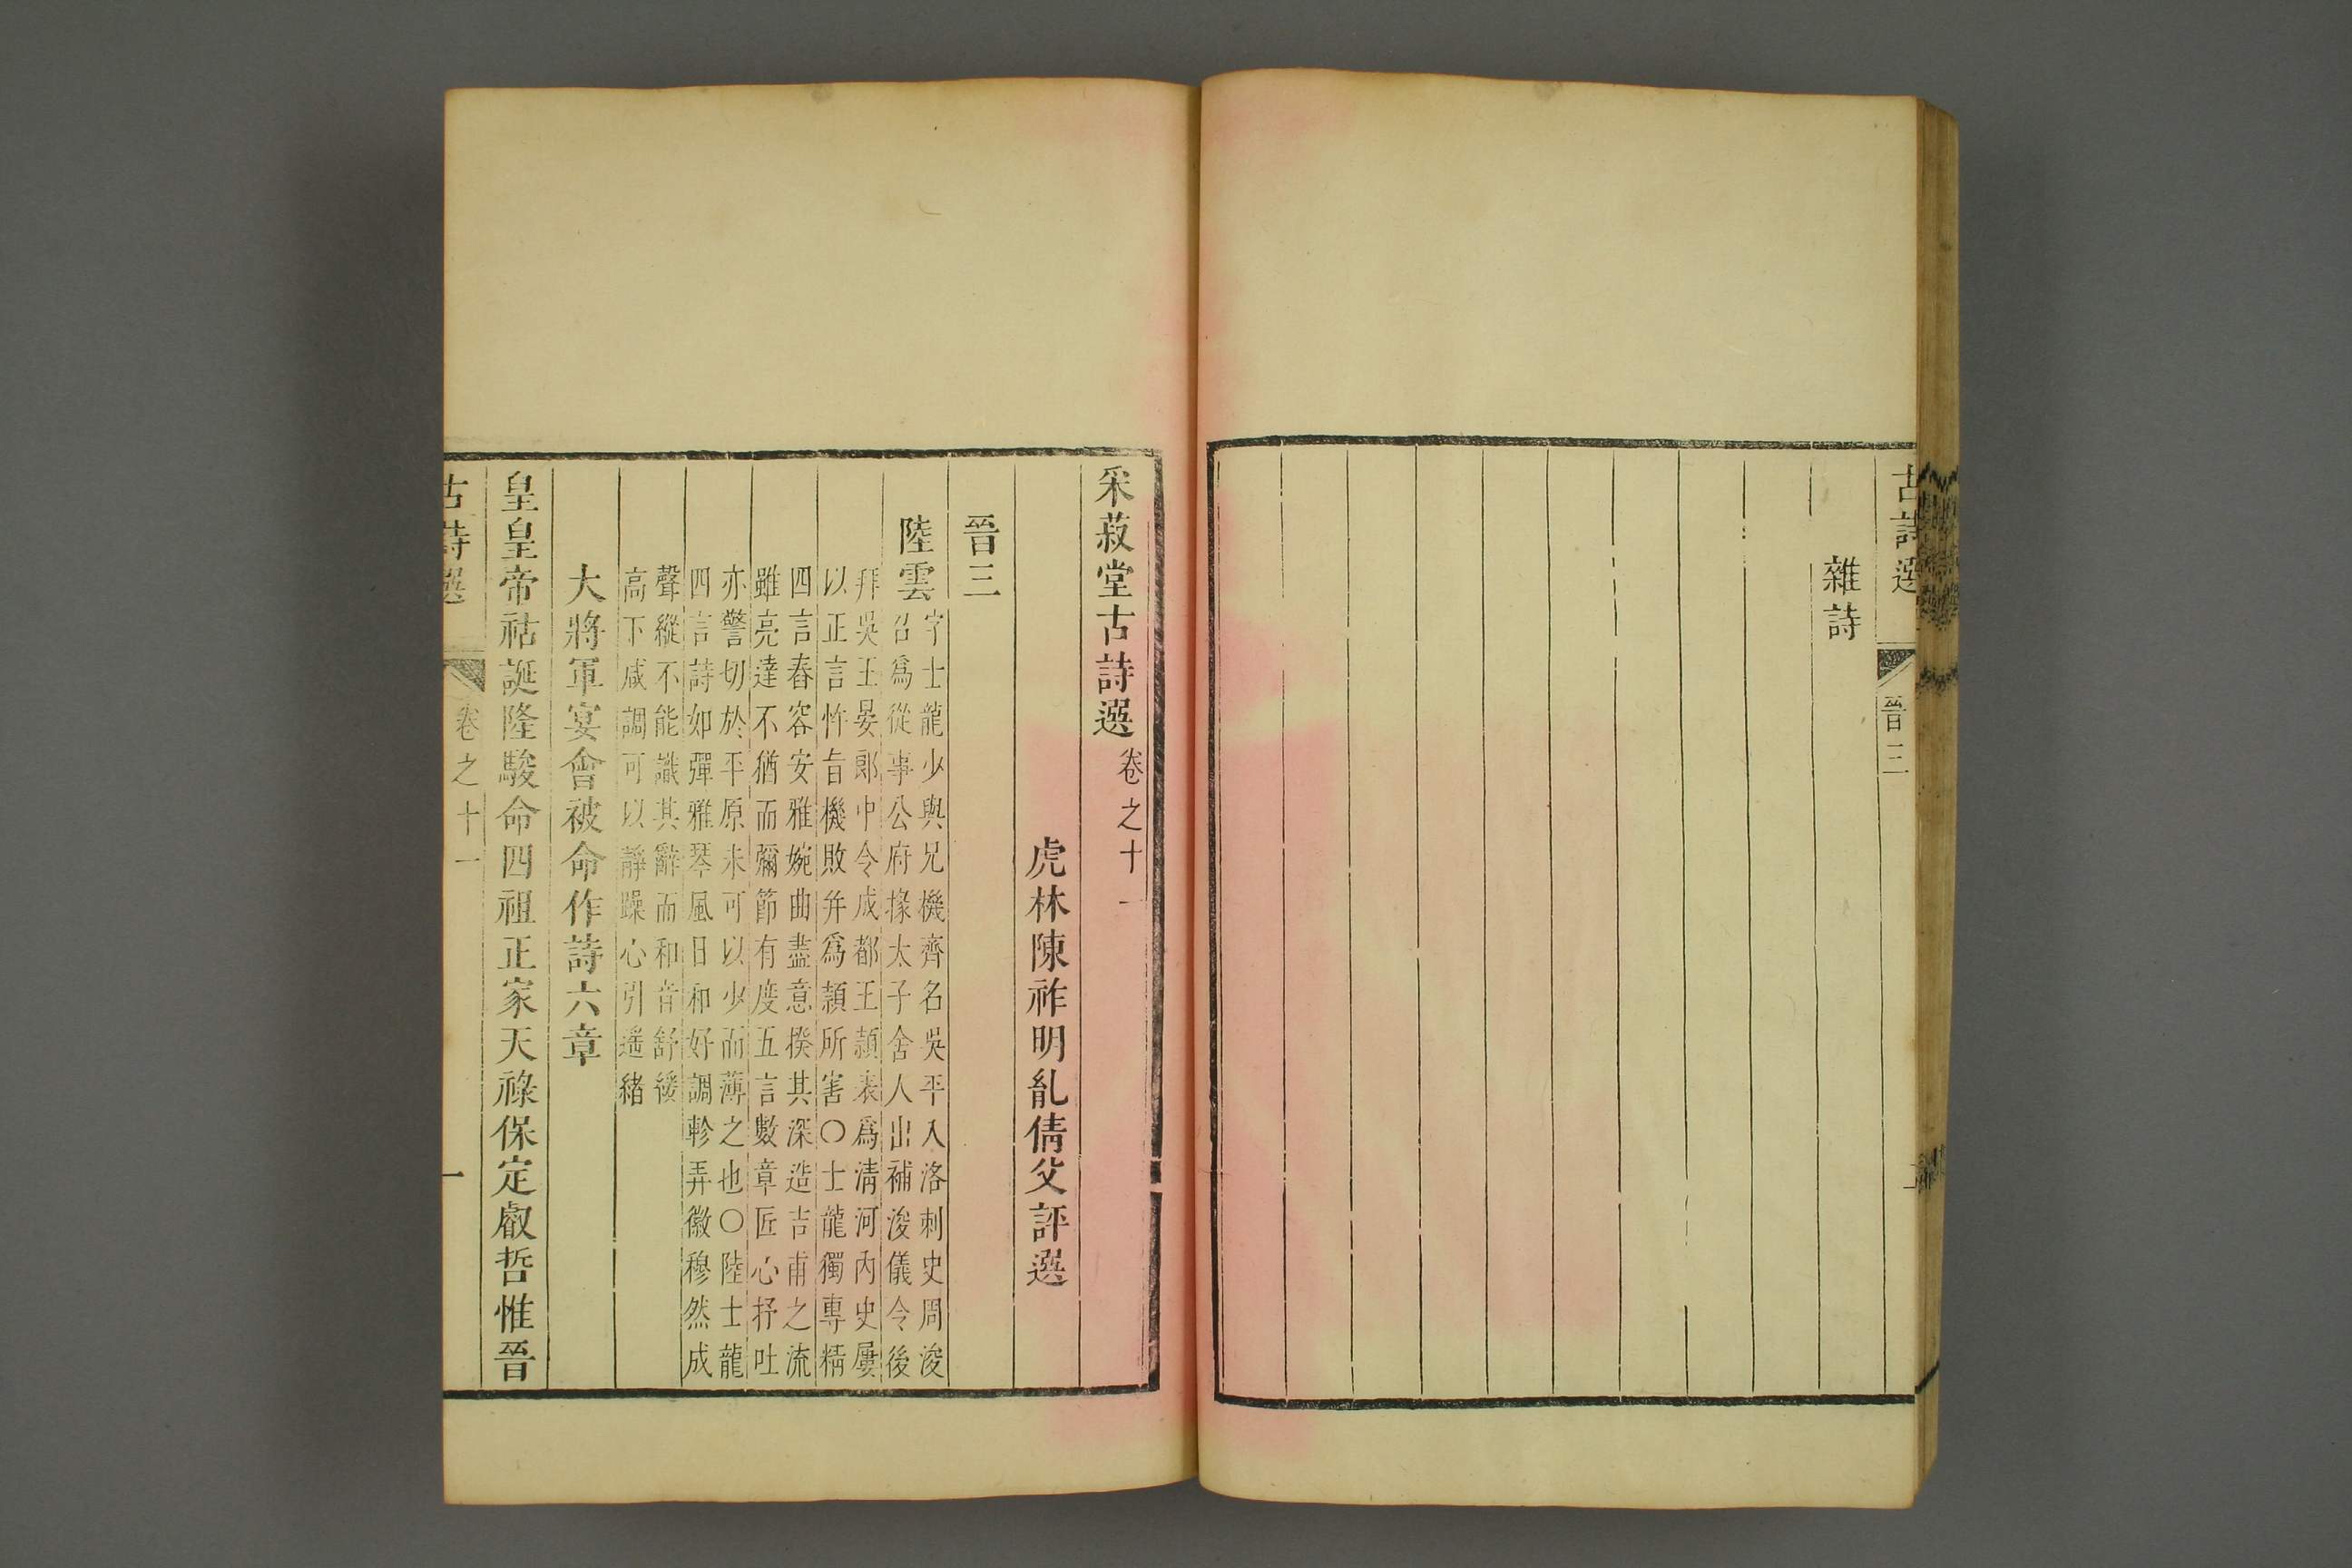 古詩選
晉三
雜詩
采菽堂古詩選卷之十一
虎林陳祚明胤倩父評選
晉三
陸雲
字士龍少與兄機齊名吳平入洛刺史周浚
召爲從事公府掾太子舍人出補浚儀令後
拜吳王晏郎中令成都王頴表爲淸河內史屢
以正言忤旨機敗并爲頴所害○士龍獨專精
四言舂容安雅婉曲盡意揆其深造吉甫之流
雖亮達不猶而彌節有度五言數章匠心抒吐
亦警切於平原未可以少而薄之也○陸士龍
四言詩如彈雅琴風日和好調軫弄徽穆然成
聲縱不能識其辭而和音舒緩
高下咸調可以靜躁心引遥緒
大將軍宴會被命作詩六章
皇皇帝祜誕隆駿命四祖正家天祿保定叡哲惟晉
古詩選
卷之十一
一